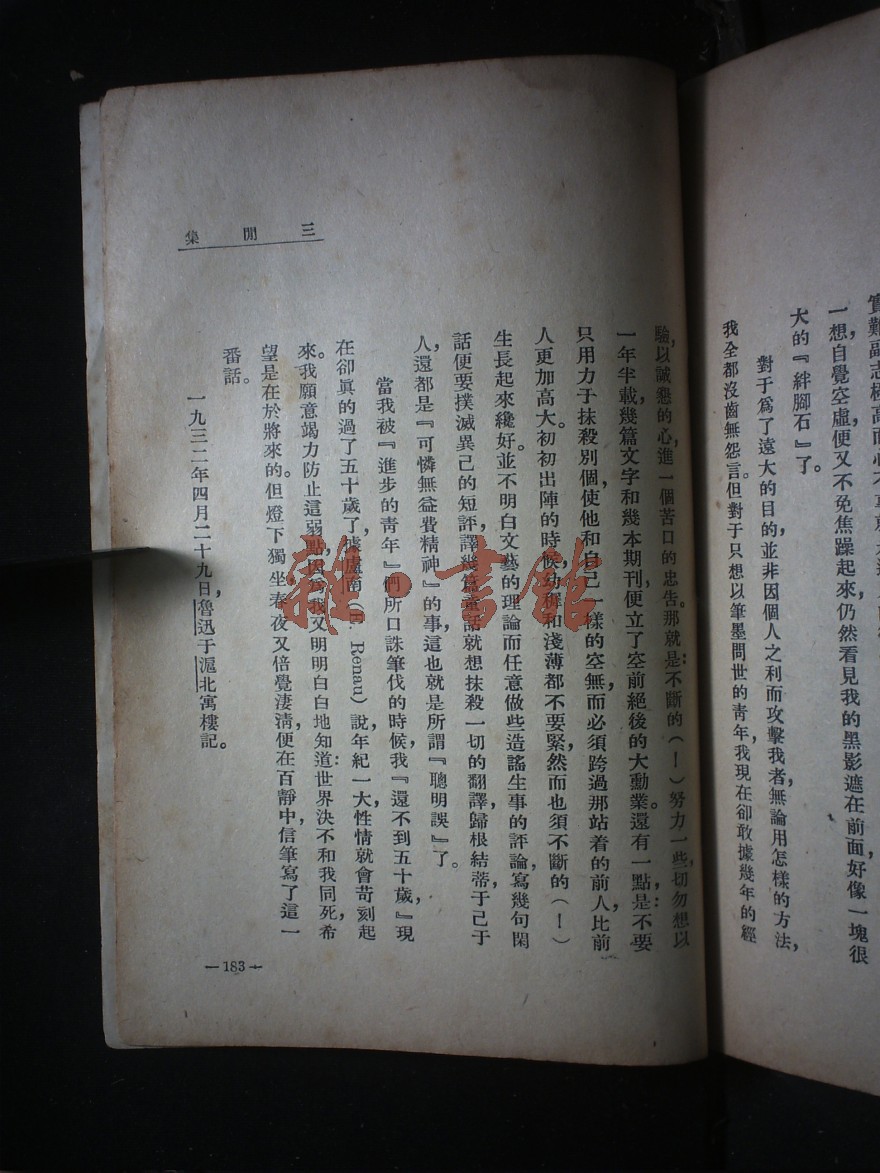 一想，自覺空虛，便又不免焦躁起來，仍然看見我的黑影遮在前面，好像一塊很
大的『絆腳石』了。
對于爲了遠大的目的，並非因個人之利而攻擊我者，無論用怎樣的方法，
我全都沒齒無怨言。但對于只想以筆墨問世的青年，我現在卻敢據幾年的經
三閒集
驗，以誠懇的心，進一個苦口的忠告。那就是：不斷的（！）努力一些，切勿想以
一年半載，幾篇文字和幾本期刊，便立了空前絕後的大勳業。還有一點，是：不要
只用力于抹殺別個，使他和自己一樣的空無，而必須跨過那站着的前人，比前
人更加高大。初初出陣的時候，幼稚和淺薄都不要緊，然而也須不斷的（！）
生長起來纔好。並不明白文藝的理論而任意做些造謠生事的評論，寫幾句閑
話便要撲滅異己的短評，譯幾篇童話就想抹殺一切的翻譯，歸根結蒂，于己于
人，還都是『可憐無益費精神』的事，這也就是所謂『聰明誤』了。
當我被『進步的青年』們所口誅筆伐的時候，我『還不到五十歲』，現
在卻眞的過了五十歲了，據盧南(E. Renau)說，年紀一大，性情就會苛刻起
來。我願意竭力防止這弱點，因爲我又明明白白地知道：世界決不和我同死，希
望是在於將來的。但燈下獨坐，春夜又倍覺淒清，便在百靜中，信筆寫了這一
番話。
一九三二年四月二十九日，魯迅于滬北寓樓記。
— 183 —
雜·書館